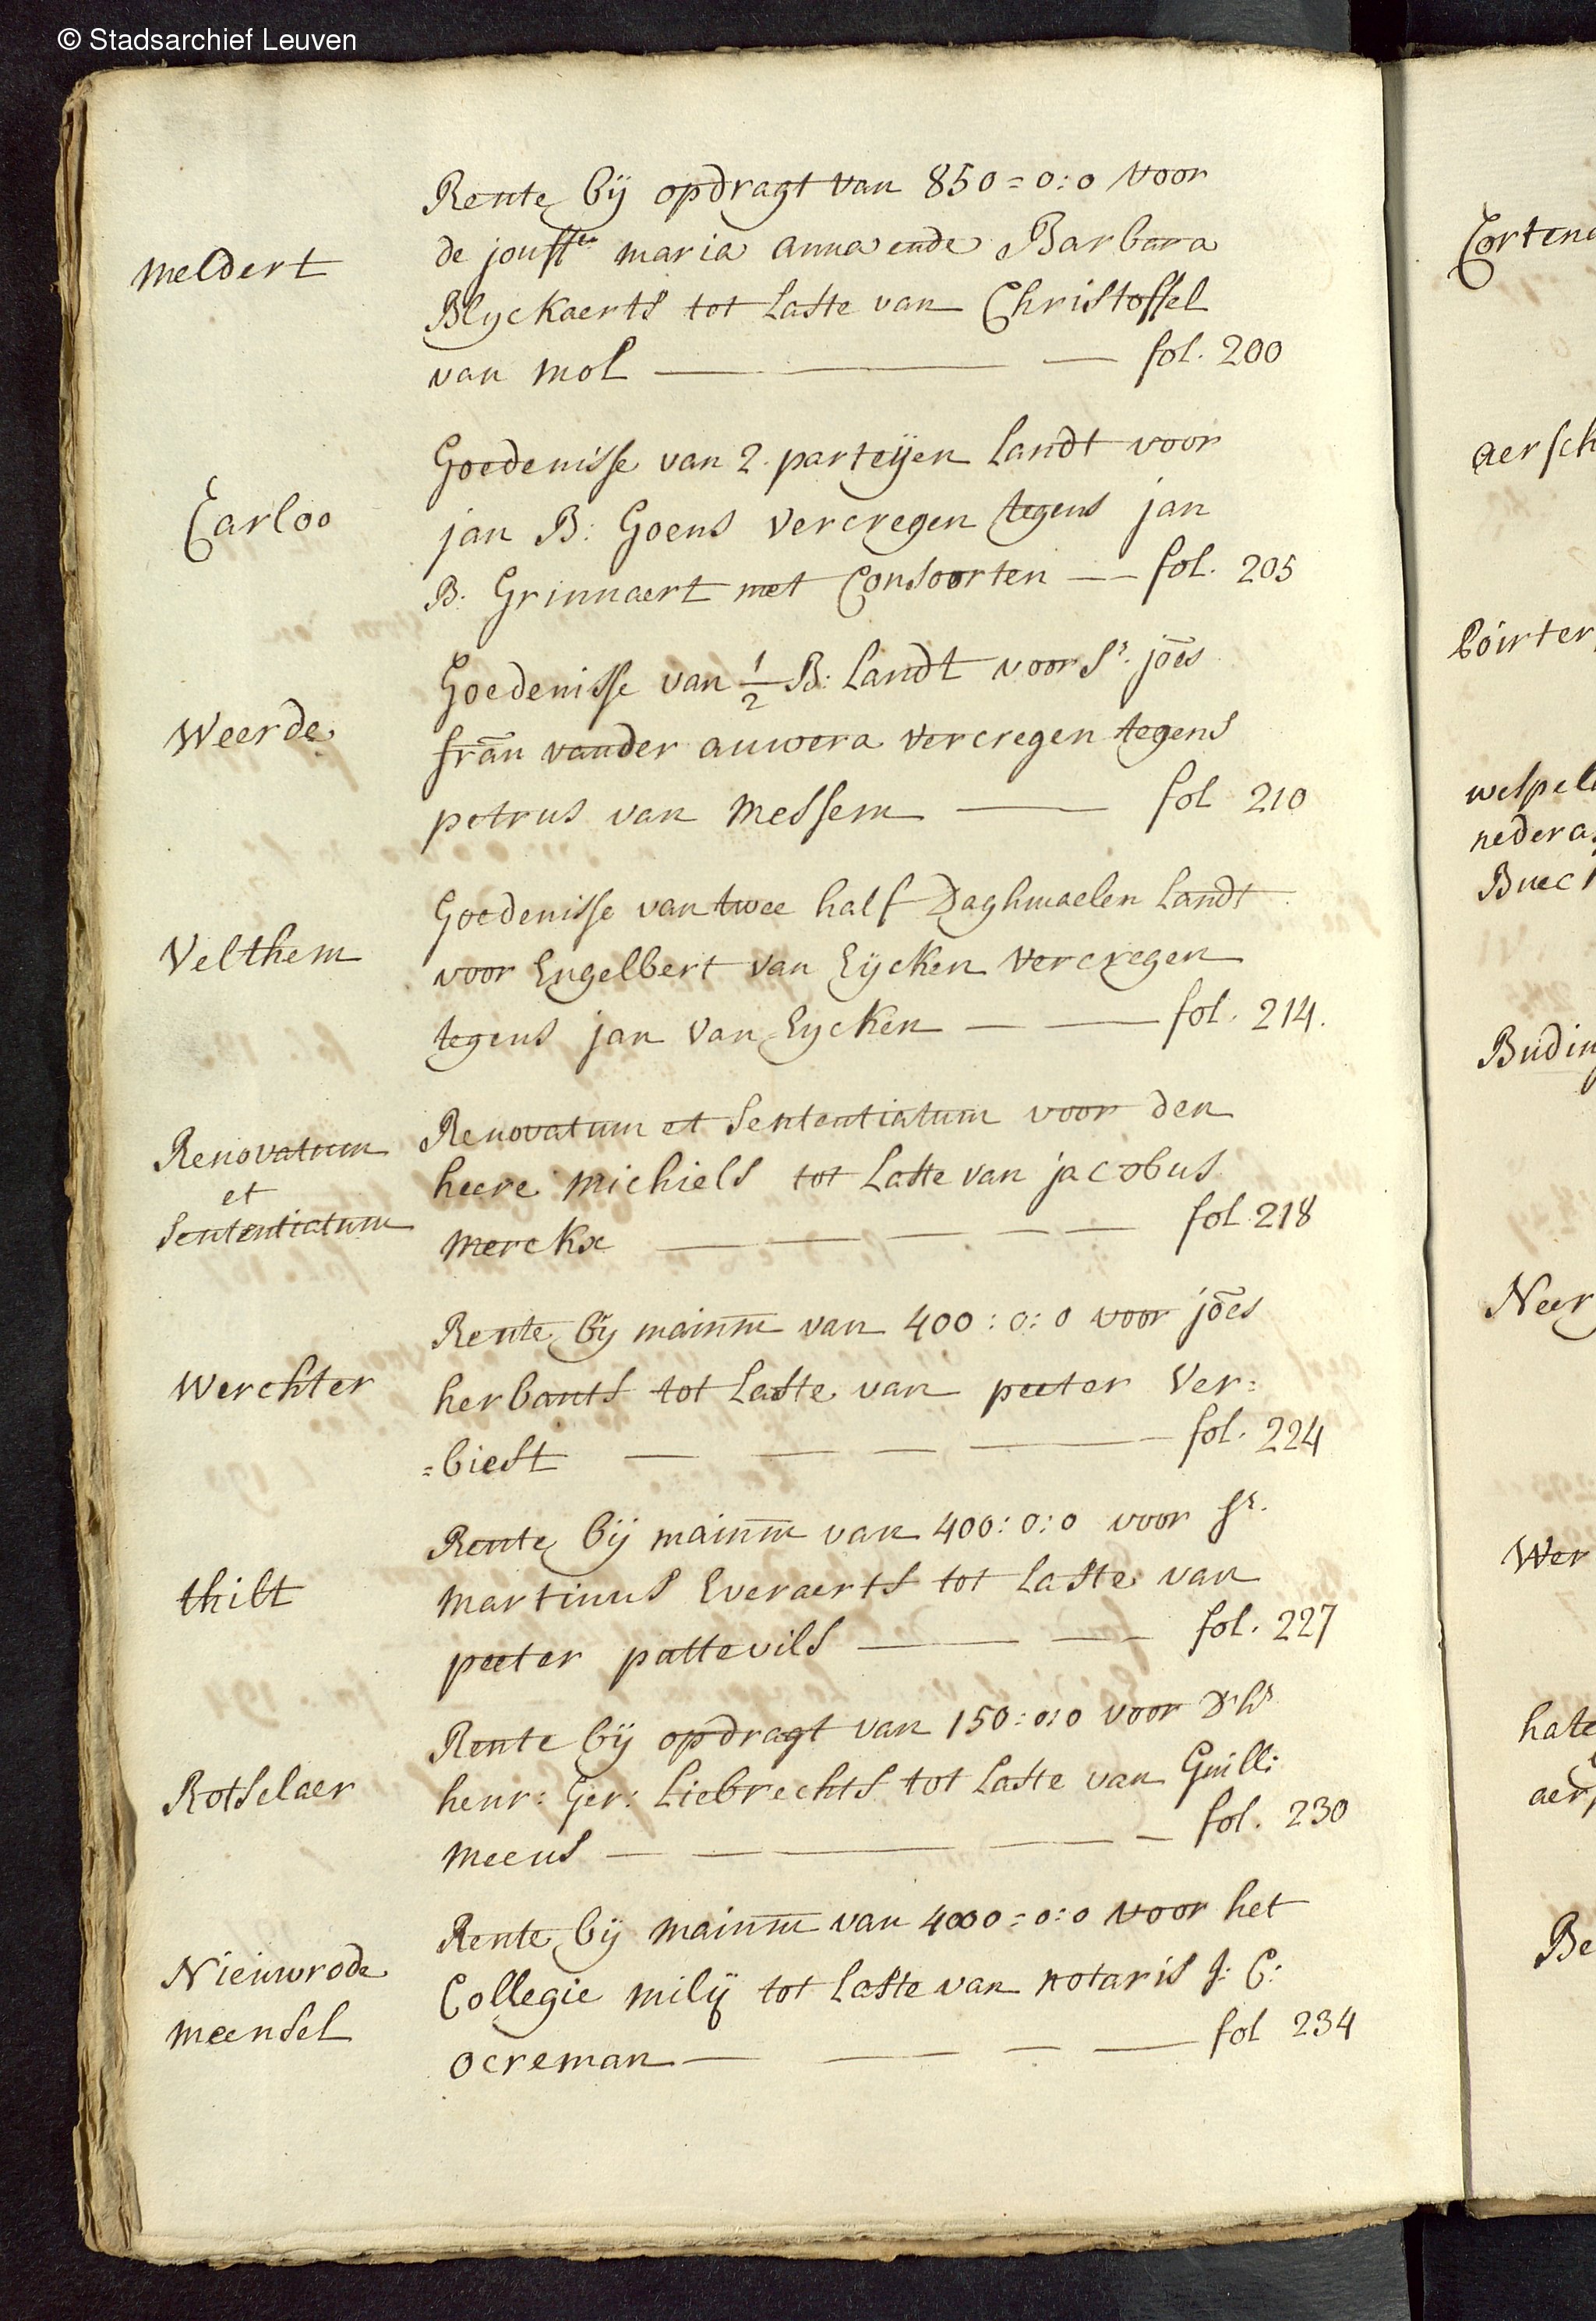 © Stadsarchief Leuven
Rente bij opdragt van 850=0:0 voor
de jouffen maria anna ende Barbara
meldert
Blyckaerts tot Laste van Christoffel
van mol fol. 200
Goedenisse van 2. parteijen Landt voor
Carloo
jan B: Goens vercregen tegens jan
B. Grinnaert met Consoorten fol. 205
Goedenisse van 1/2 B: Landt voor Sr. jōes
Weerde
frān vander auwera vercregen tegens
petrus van Messem fol 210
Goedenisse van twee half Daghmaelen Landt
Velthem
voor Engelbert van Eijcken vercregen
tegens jan van Eycken fol. 214.
Renovatum et Sententiatum voor den
Renovatum
et
Sententiatum
heere michiels tot Laste van jacobus
merckx fol. 218
Rente bij mainm̄ van 400:0:0 voor jōes
Werchter
herbants tot Laste van peeter Ver=
=biest fol. 224
Rente bij mainm̄ van 400:0:0 voor Sr.
thilt
martinus Everaerts tot Laste van
peeter pattevils fol. 227
Rente bij opdragt van 150:0:0 voor
Rotselaer
henr: Ger: Liebrechts tot Laste van Guill:
meeus fol. 230
Rente bij mainm̄ van 4000=0:0 voor het
Nieuwrode
meensel
Collegie milij tot Laste van notaris J: C:
ocreman fol 234
Cortena
aersch
Boirter
wespel
nedera
Buec
Budin
Neer
Wer
hate
aer
Be